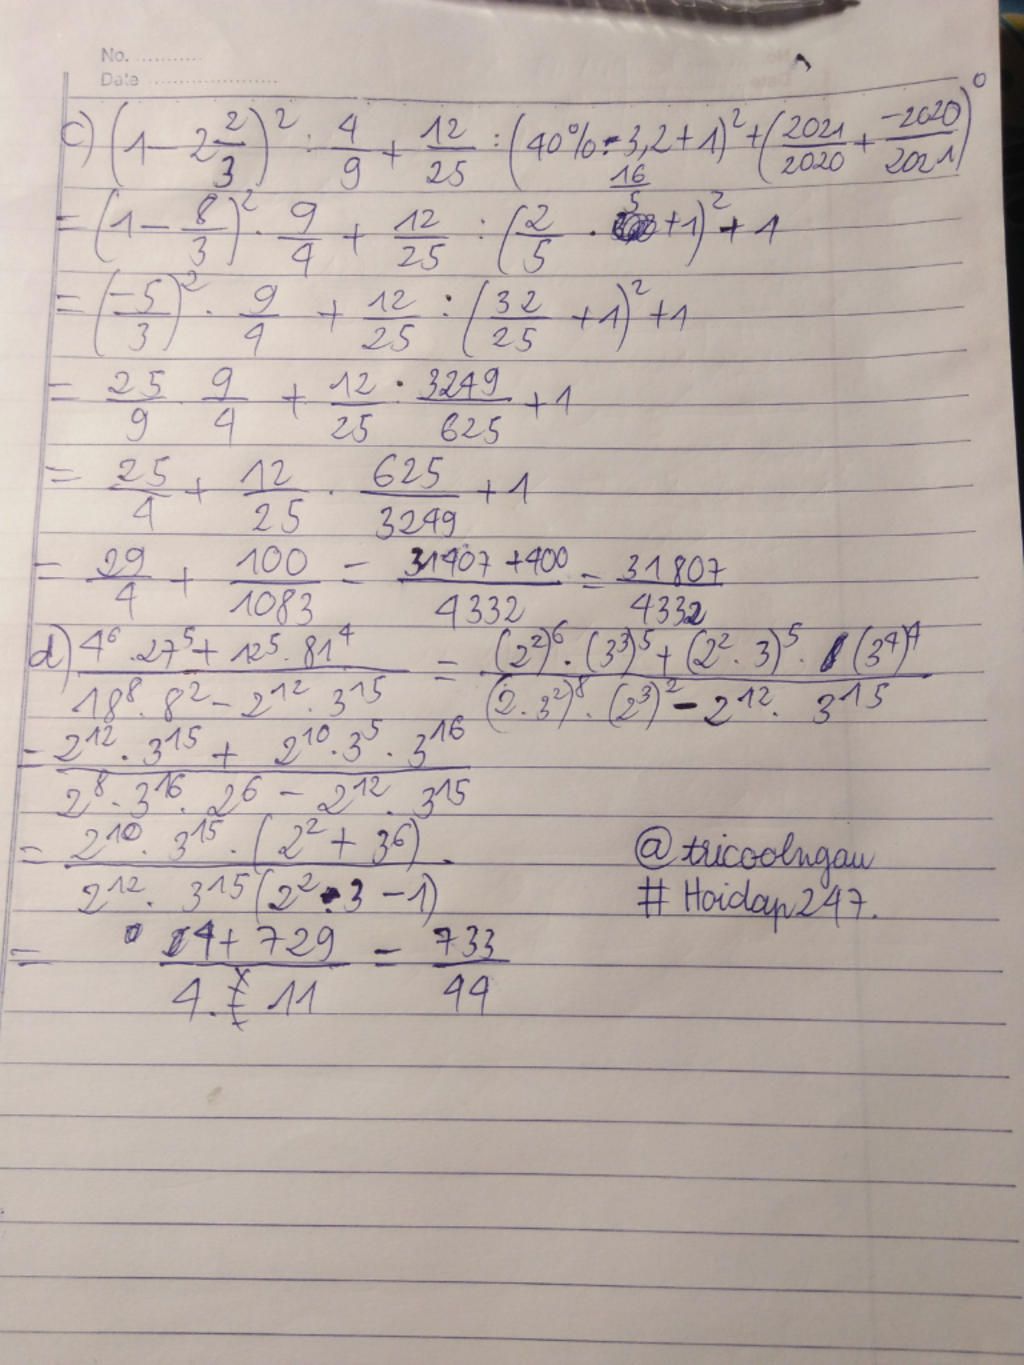 No. ..........
Date ....................
c) (1 - 2 2/3)² : 4/9 + 12/25 : (40% · 3,2 + 1)² + (2021/2020 + -2020/2021)⁰
= (1 - 8/3)² · 9/4 + 12/25 : (2/5 · 16/5 + 1)² + 1
= (-5/3)² · 9/4 + 12/25 : (32/25 + 1)² + 1
= 25/9 · 9/4 + 12/25 · 3249/625 + 1
= 25/4 + 12/25 · 625/3249 + 1
= 29/4 + 100/1083 = 31407 + 400/4332 = 31807/4332
d) 4⁶ · 27⁵ + 12⁵ · 81⁴/18⁸ · 8² - 2¹² · 3¹⁵ = (2²)⁶ · (3³)⁵ + (2² · 3)⁵ · (3⁴)⁴/(2 · 3²)⁸ · (2³)² - 2¹² · 3¹⁵
= 2¹² · 3¹⁵ + 2¹⁰ · 3⁵ · 3¹⁶/2⁸ · 3¹⁶ · 2⁶ - 2¹² · 3¹⁵
= 2¹⁰ · 3¹⁵ · (2² + 3⁶)/2¹² · 3¹⁵ (2² · 3 - 1)
= 4 + 729/4 · 11 = 733/44
@tricoolngau
# Hoidap247.